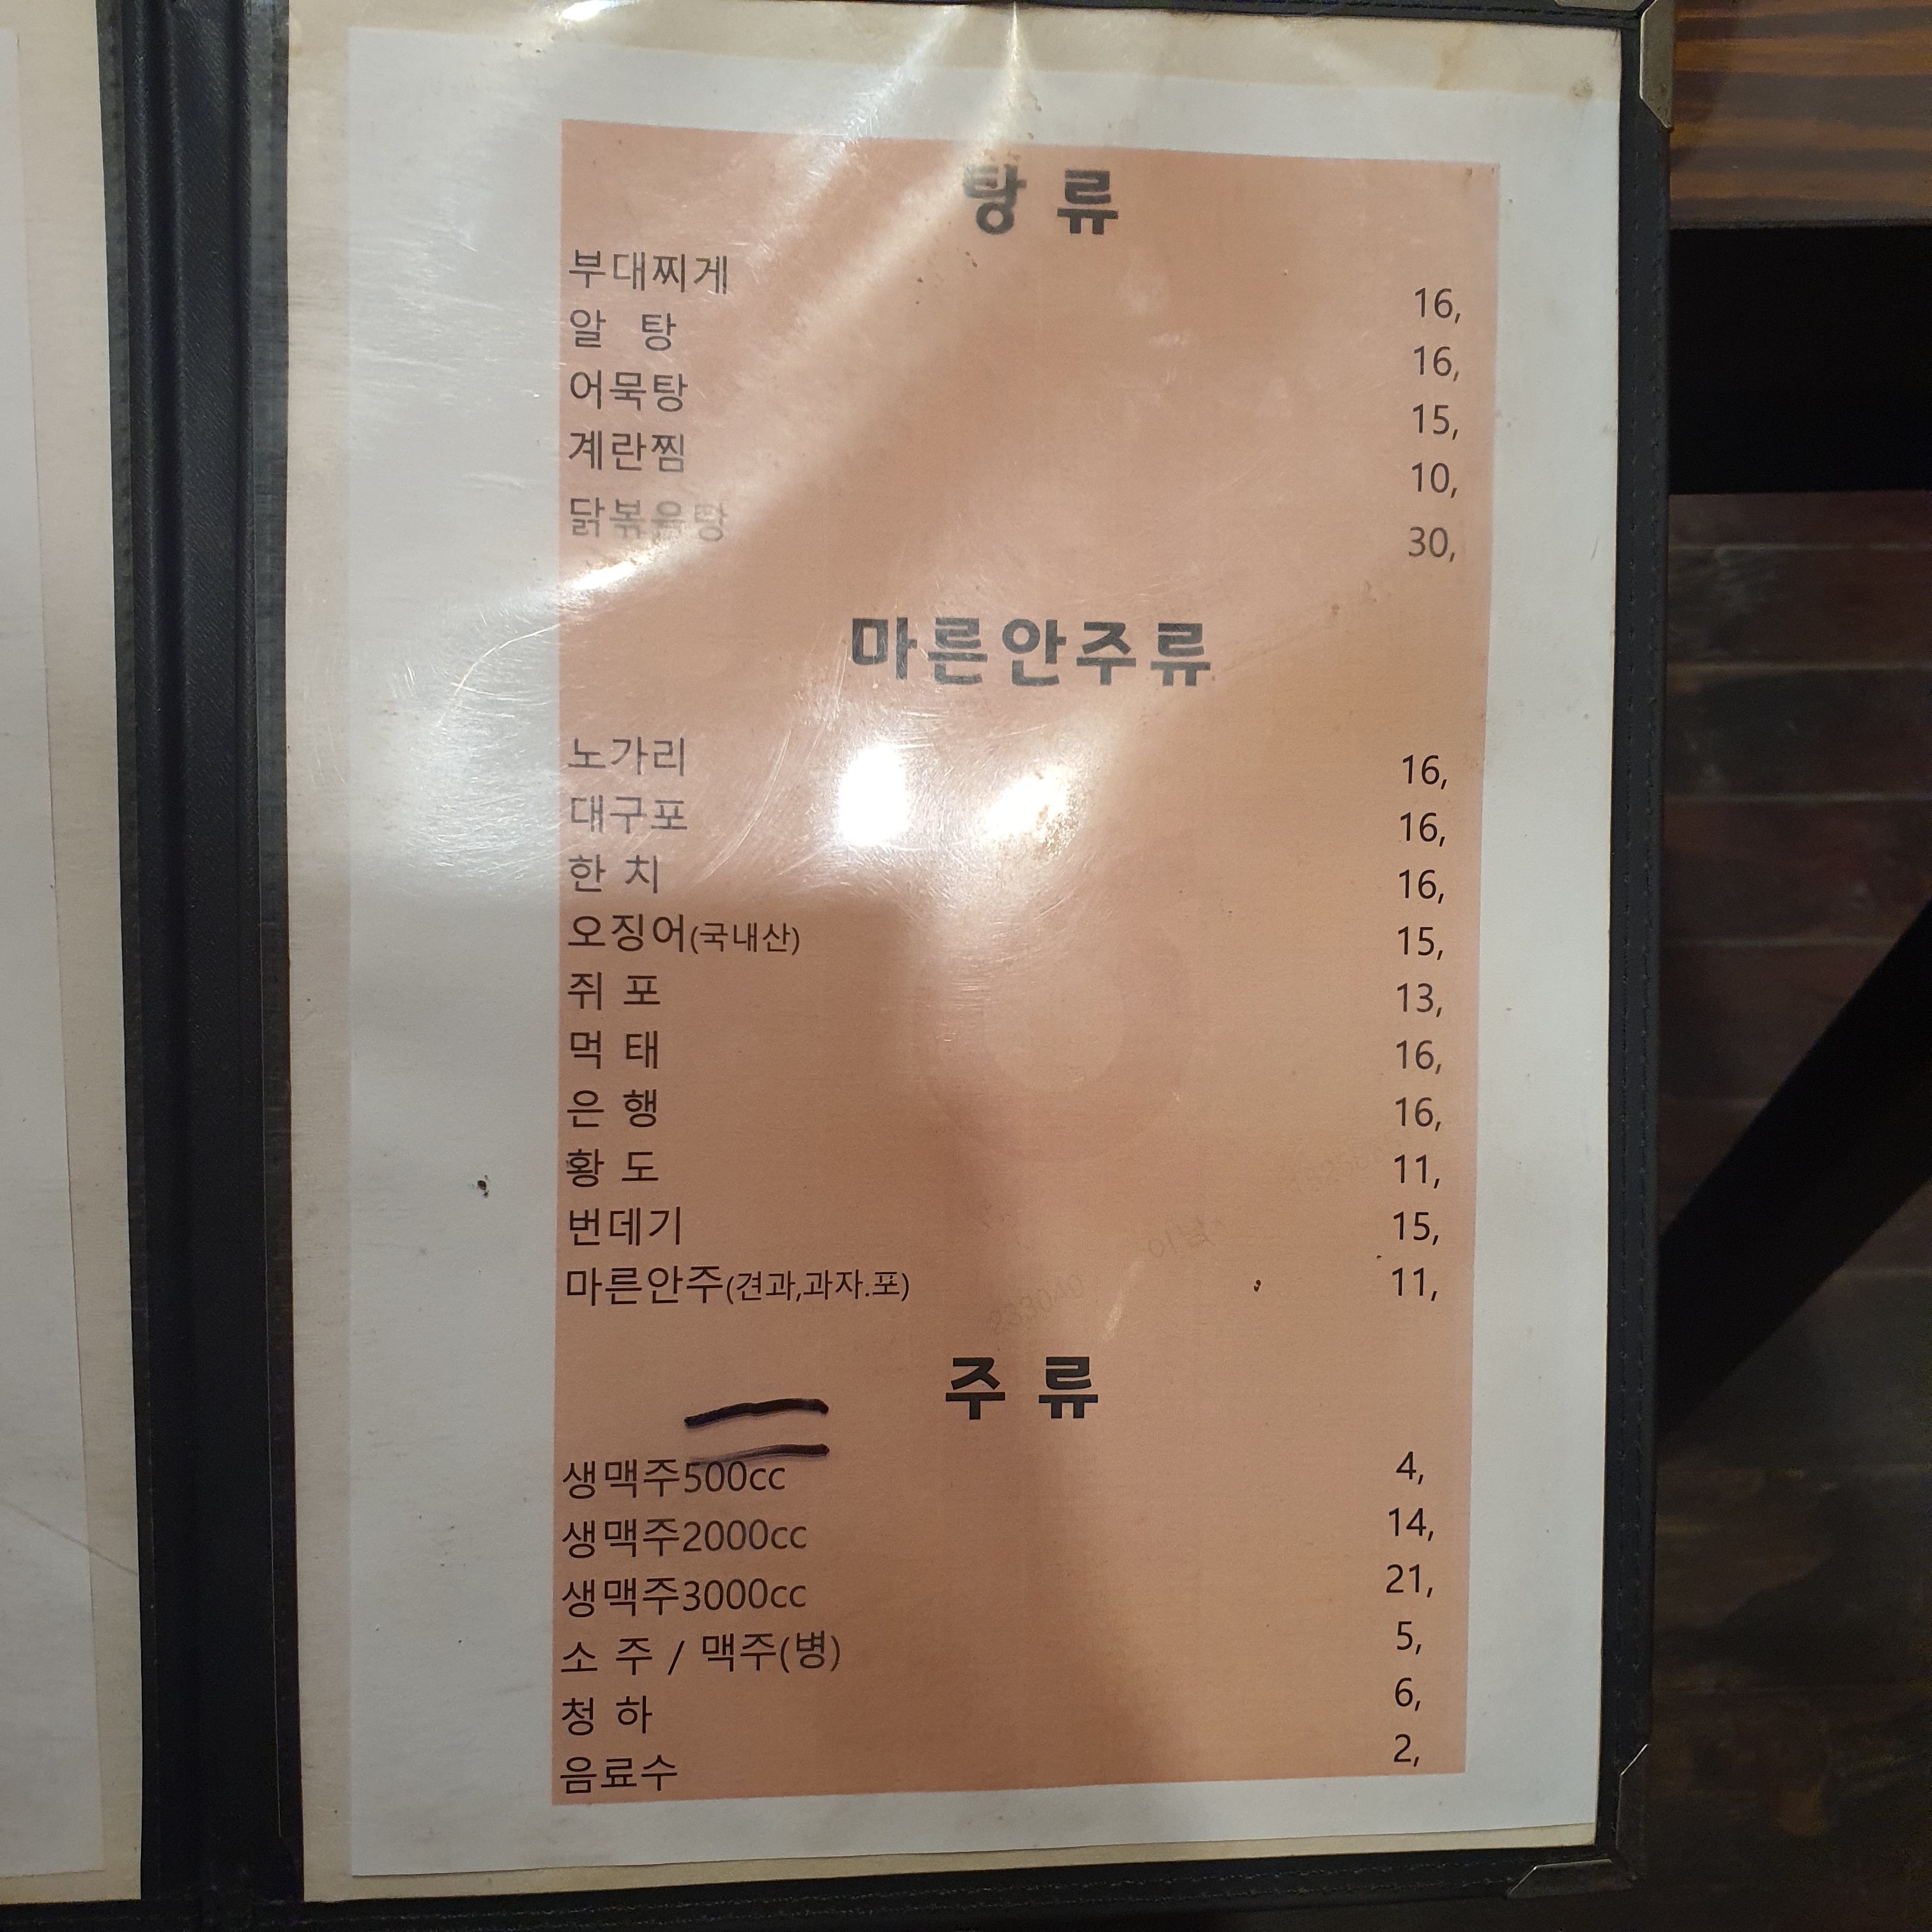 탕 류
부대찌게 16,
알 탕 16,
어묵탕 15,
계란찜 10,
닭볶음탕 30,
마른안주류
노가리 16,
대구포 16,
한 치 16,
오징어(국내산) 15,
쥐 포 13,
먹 태 16,
은 행 16,
황 도 11,
번데기 15,
마른안주(견과,과자.포) 11,
주 류
생맥주500cc 4,
생맥주2000cc 14,
생맥주3000cc 21,
소 주 / 맥주(병) 5,
청 하 6,
음료수 2,